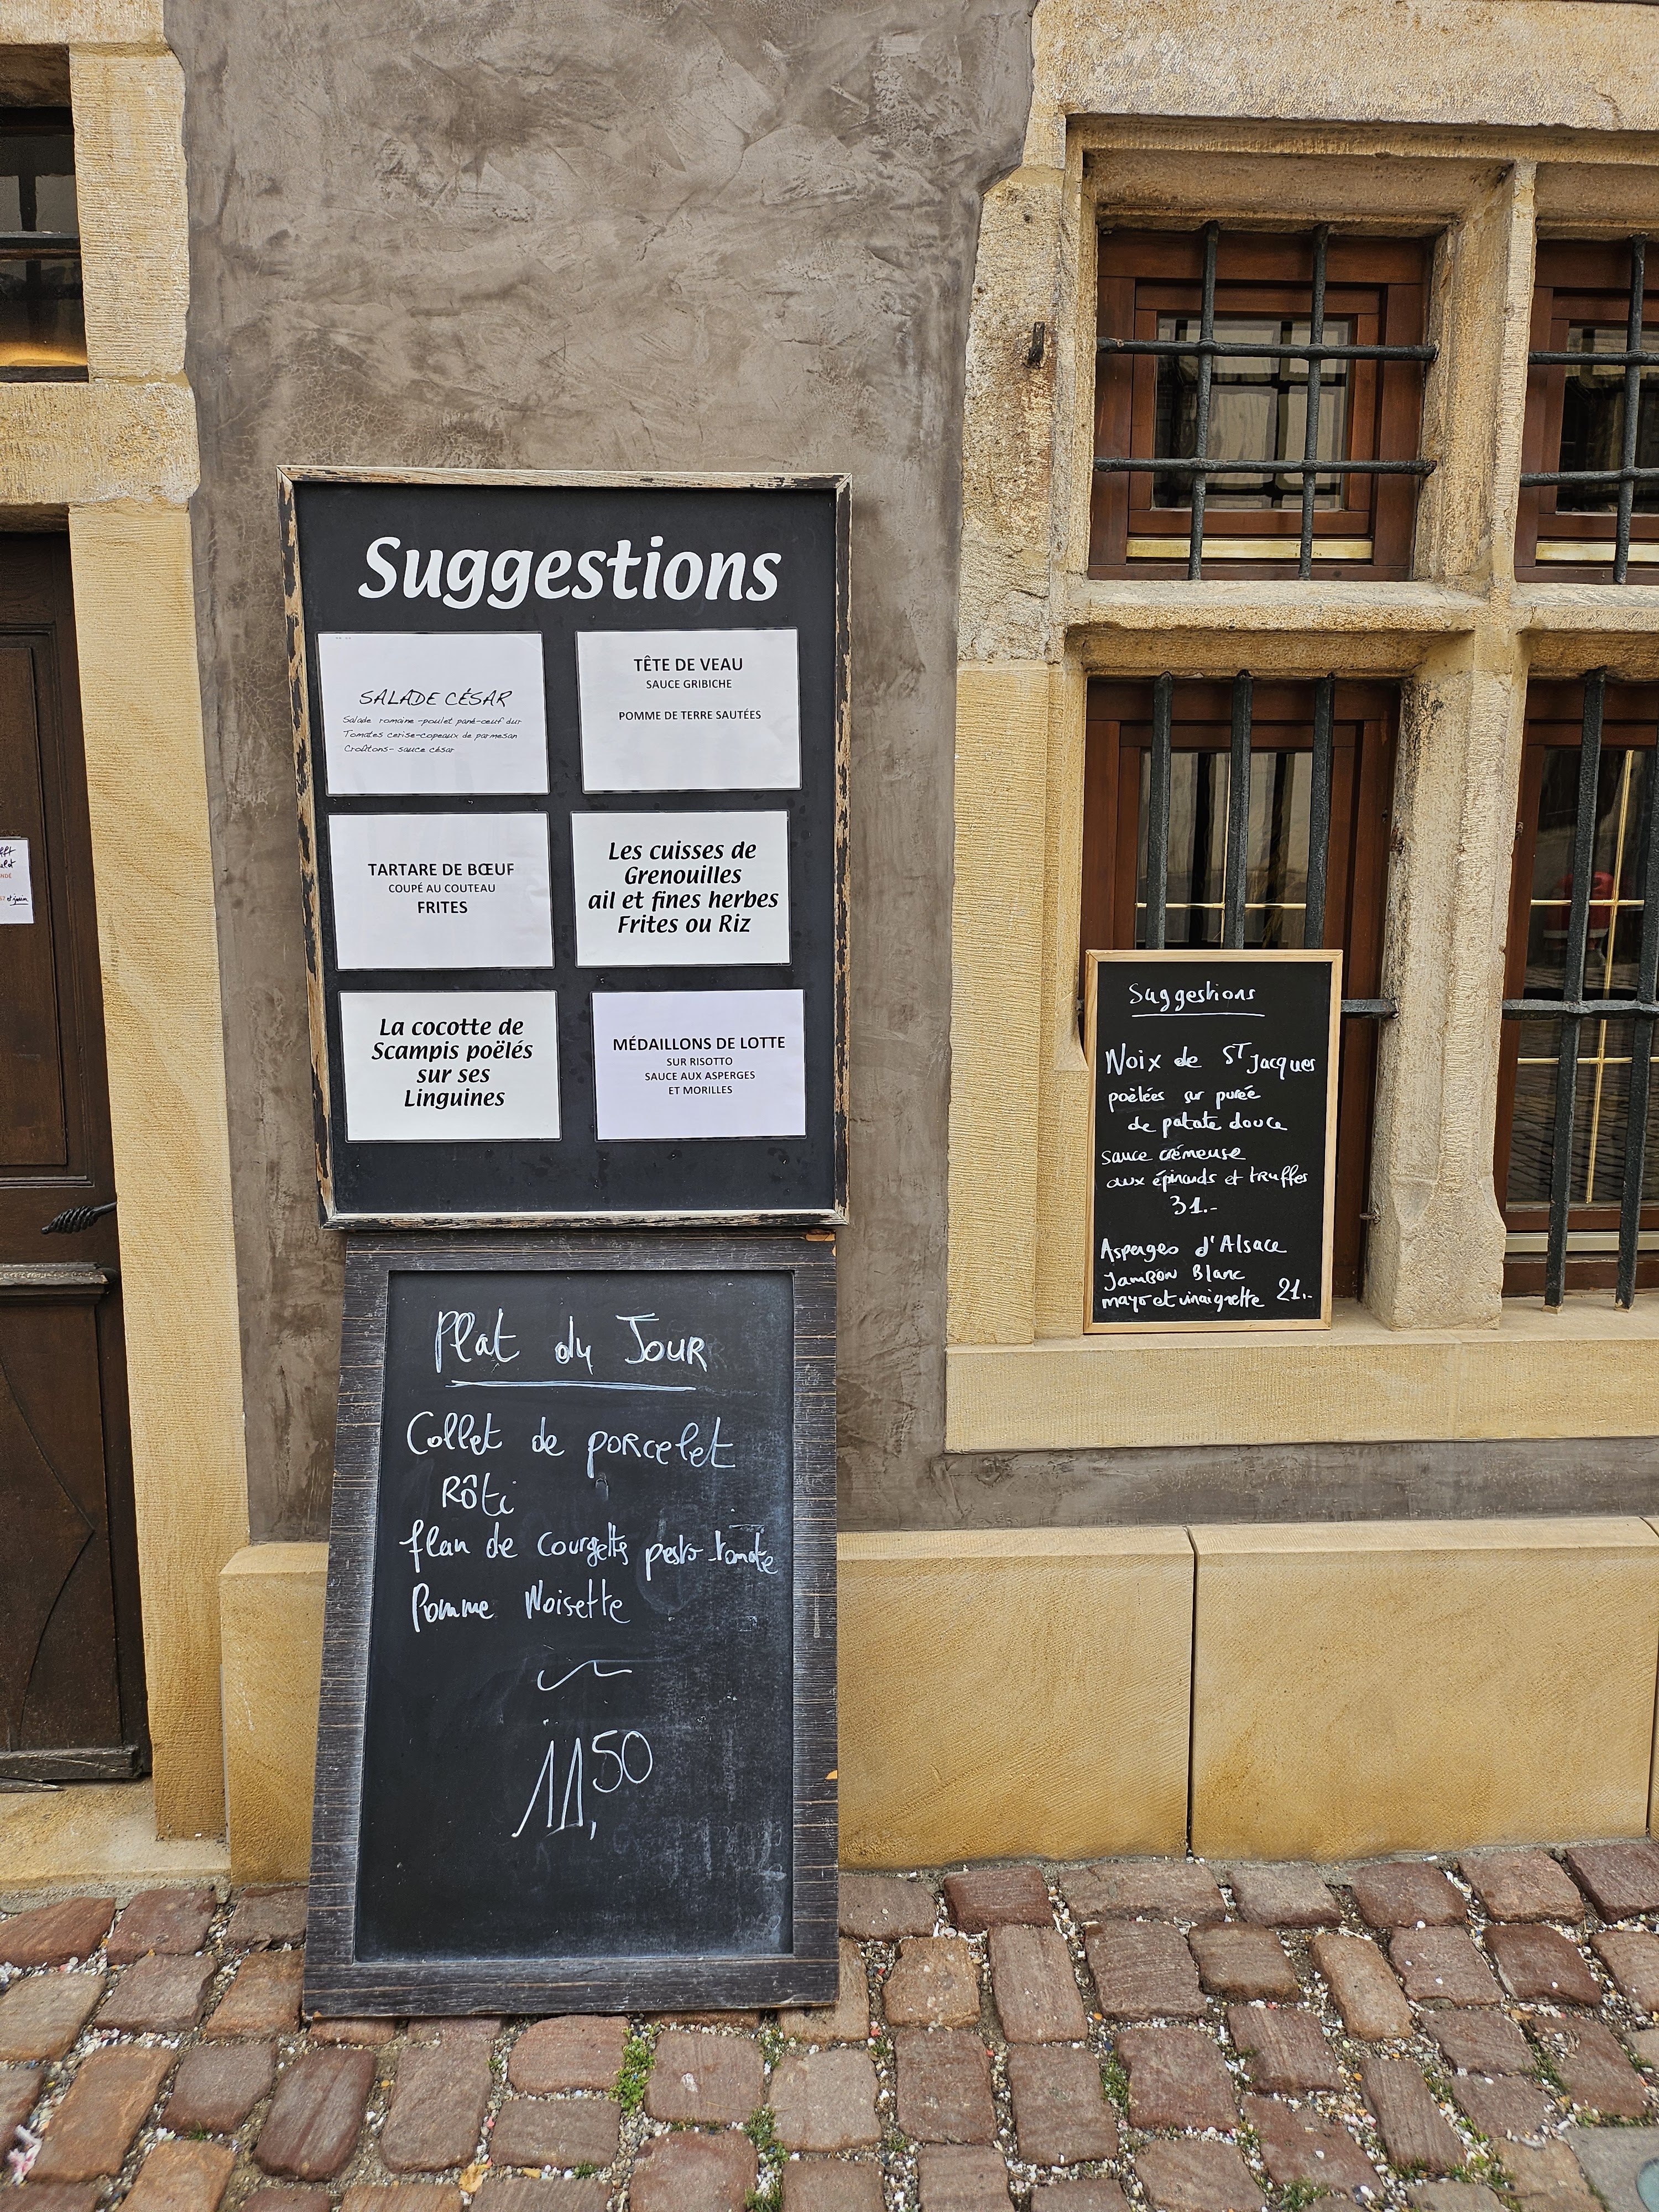 Suggestions
SALADE CÉSAR
Salade romaine -poulet pané-oeuf dur
Tomates cerise-copeaux de parmesan
Croûtons- sauce césar
TÊTE DE VEAU
SAUCE GRIBICHE
POMME DE TERRE SAUTÉES
TARTARE DE BŒUF
COUPÉ AU COUTEAU
FRITES
Les cuisses de
Grenouilles
ail et fines herbes
Frites ou Riz
La cocotte de
Scampis poëlés
sur ses
Linguines
MÉDAILLONS DE LOTTE
SUR RISOTTO
SAUCE AUX ASPERGES
ET MORILLES
Plat du Jour
Collet de porcelet
Rôti
flan de courgette pesto tomate
Pomme Noisette
11,50
Suggestions
Noix de ST Jacques
poëlées sur purée
de patate douce
sauce crémeuse
aux épinards et truffes
31.-
Asperges d'Alsace
Jambon Blanc
mayo et vinaigrette 21.-